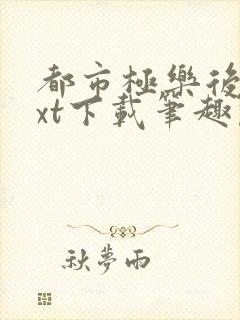 都市極樂後
xt下載筆趣
秋夢雨